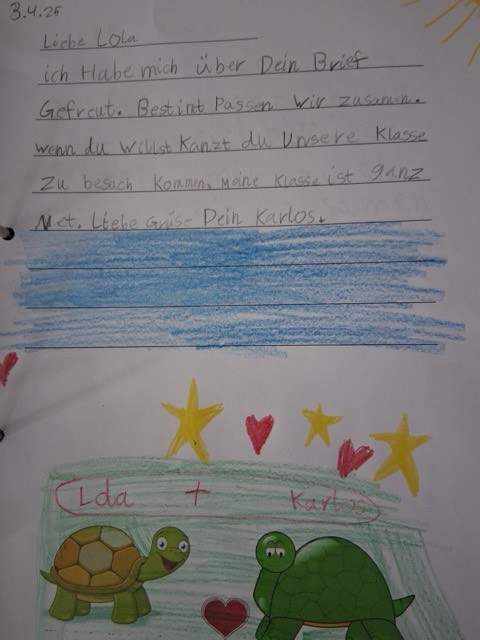 3.4.25
Liebe Lola
ich Habe mich über Dein Brief
Gefreut. Bestimt Passen wir zusamen.
wenn du willst Kanzt du Unsere Klasse
Zu besuch kommen. Meine Klasse ist ganz
Net. Liebe Grüse Dein Karlos.
Lola + Karlos